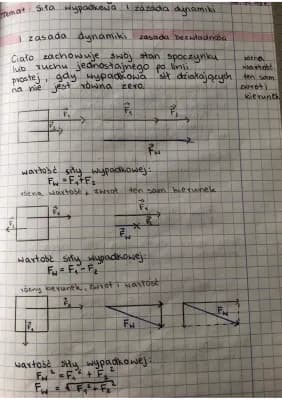 temat: Siła wypadkowa i zasada dynamiki
I zasada dynamiki zasada bezwładności
Ciało zachowuje swój stan spoczynku
lub ruchu jednostajnego po linii
prostej, gdy wypadkowa sił działających
na nie jest równa zero.
wartość
ten sam
zwrot i
kierunek
F₁
F₂
F₁
F₂
Fw
wartość siły wypadkowej:
Fw = F₁ + F₂
różna wartość i zwrot ten sam kierunek
F₂
F₁
F₁
F₂
Fw
wartość siły wypadkowej:
Fw = F₁ - F₂
różny kierunek, zwrot i wartość
F₂
F₁
Fw
Fw
wartość siły wypadkowej:
Fw² = F₁² + F₂²
Fw = √F₁² + F₂²